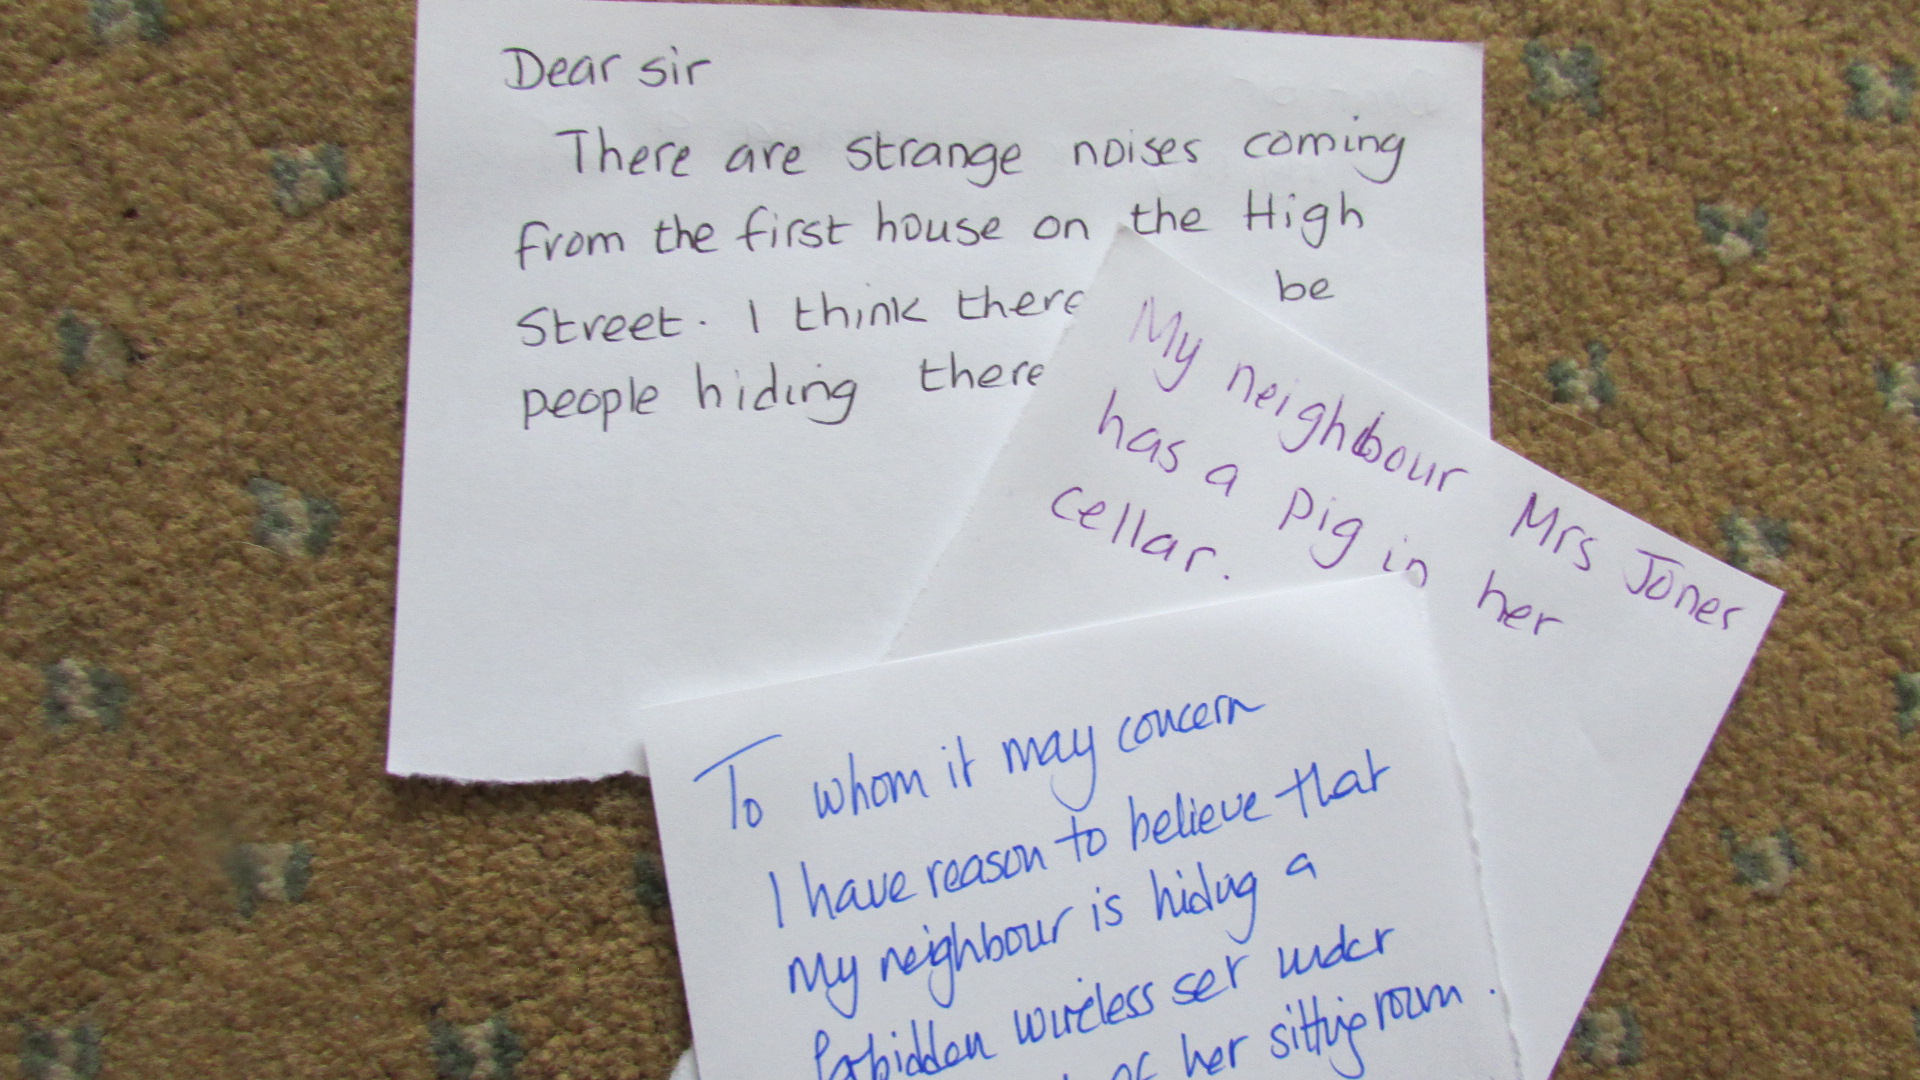 Dear sir
There are strange noises coming
from the first house on the High
Street. I think there be
people hiding there
My neighbour Mrs Jones
has a pig in her
cellar.
To whom it may concern
I have reason to believe that
my neighbour is hiding a
forbidden wireless set under
of her sitting room.